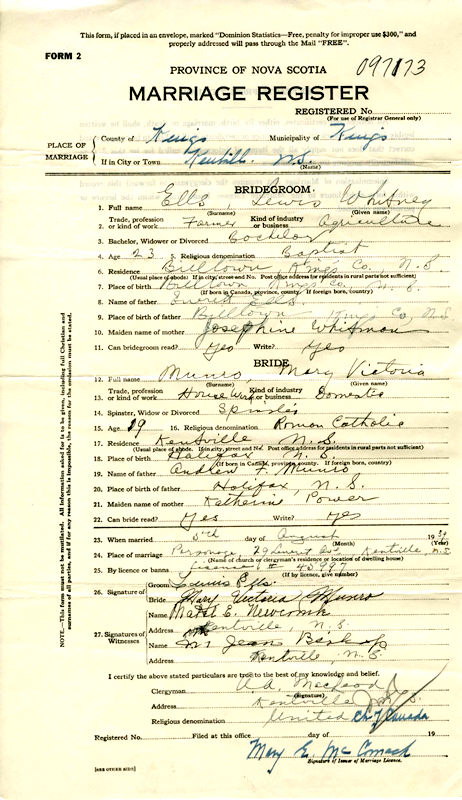 This form, if placed in an envelope, marked "Dominion Statistics—Free, penalty for improper use $300," and
properly addressed will pass through the Mail "FREE".
FORM 2
PROVINCE OF NOVA SCOTIA
097173
MARRIAGE REGISTER
REGISTERED No
(For use of Registrar General only)
PLACE OF MARRIAGE
County of Kings Municipality of Kings
If in City or Town Kentville N.S.
(Name)
BRIDEGROOM
1. Full name Ells, Lewis Whitney
(Surname) (Given name)
2. Trade, profession or kind of work Farmer Kind of industry or business Agriculture
3. Bachelor, Widower or Divorced Bachelor
4. Age 23 5. Religious denomination Baptist
6. Residence Billtown Kings Co. N.S.
(Usual place of abode. If in city, street and No. Post office address for residents in rural parts not sufficient)
7. Place of birth Billtown Kings Co. N.S.
(If born in Canada, province, county. If foreign born, country)
8. Name of father Everett Ells
9. Place of birth of father Billtown Kings Co, N.S
10. Maiden name of mother Josephine Whitman
11. Can bridegroom read? Yes Write? Yes
BRIDE
12. Full name Munro, Mary Victoria
(Surname) (Given name)
13. Trade, profession or kind of work House Work Kind of industry or business Domestic
14. Spinster, Widow or Divorced Spinster
15. Age 19 16. Religious denomination Roman Catholic
17. Residence Kentville N.S.
(Usual place of abode. If in city, street and No. Post office address for residents in rural parts not sufficient)
18. Place of birth Halifax N.S.
(If born in Canada, province, county. If foreign born, country)
19. Name of father Andrew F. Munro
20. Place of birth of father Halifax, N.S.
21. Maiden name of mother Katherine Power
22. Can bride read? Yes Write? Yes
23. When married 5th day of August 19
(Month) (Year)
24. Place of marriage Parsonage, 29 Kentville N.S.
(Name of church or clergyman's residence or location of dwelling house)
25. By licence or banns license # 45997
(If by licence, give number)
26. Signature of
Groom Lewis Ells.
Bride Mary Victoria Munro
27. Signatures of Witnesses
Name Mabel E. Newcomb
Address Kentville, N.S.
Name Jean Bishop
Address Kentville, N.S.
I certify the above stated particulars are true to the best of my knowledge and belief.
Clergyman A.D. MacLeod
(Signature)
Address Kentville N.S.
Religious denomination United Ch of Canada
Registered No. Filed at this office day of 19
Mary E. McCormack
Signature of Issuer of Marriage Licence.
[SEE OTHER SIDE]
NOTE.—This form must not be mutilated. All information asked for is to be given, including full Christian and
surnames of all parties, and if for any reason this is impossible, the reason for the omission must be stated.